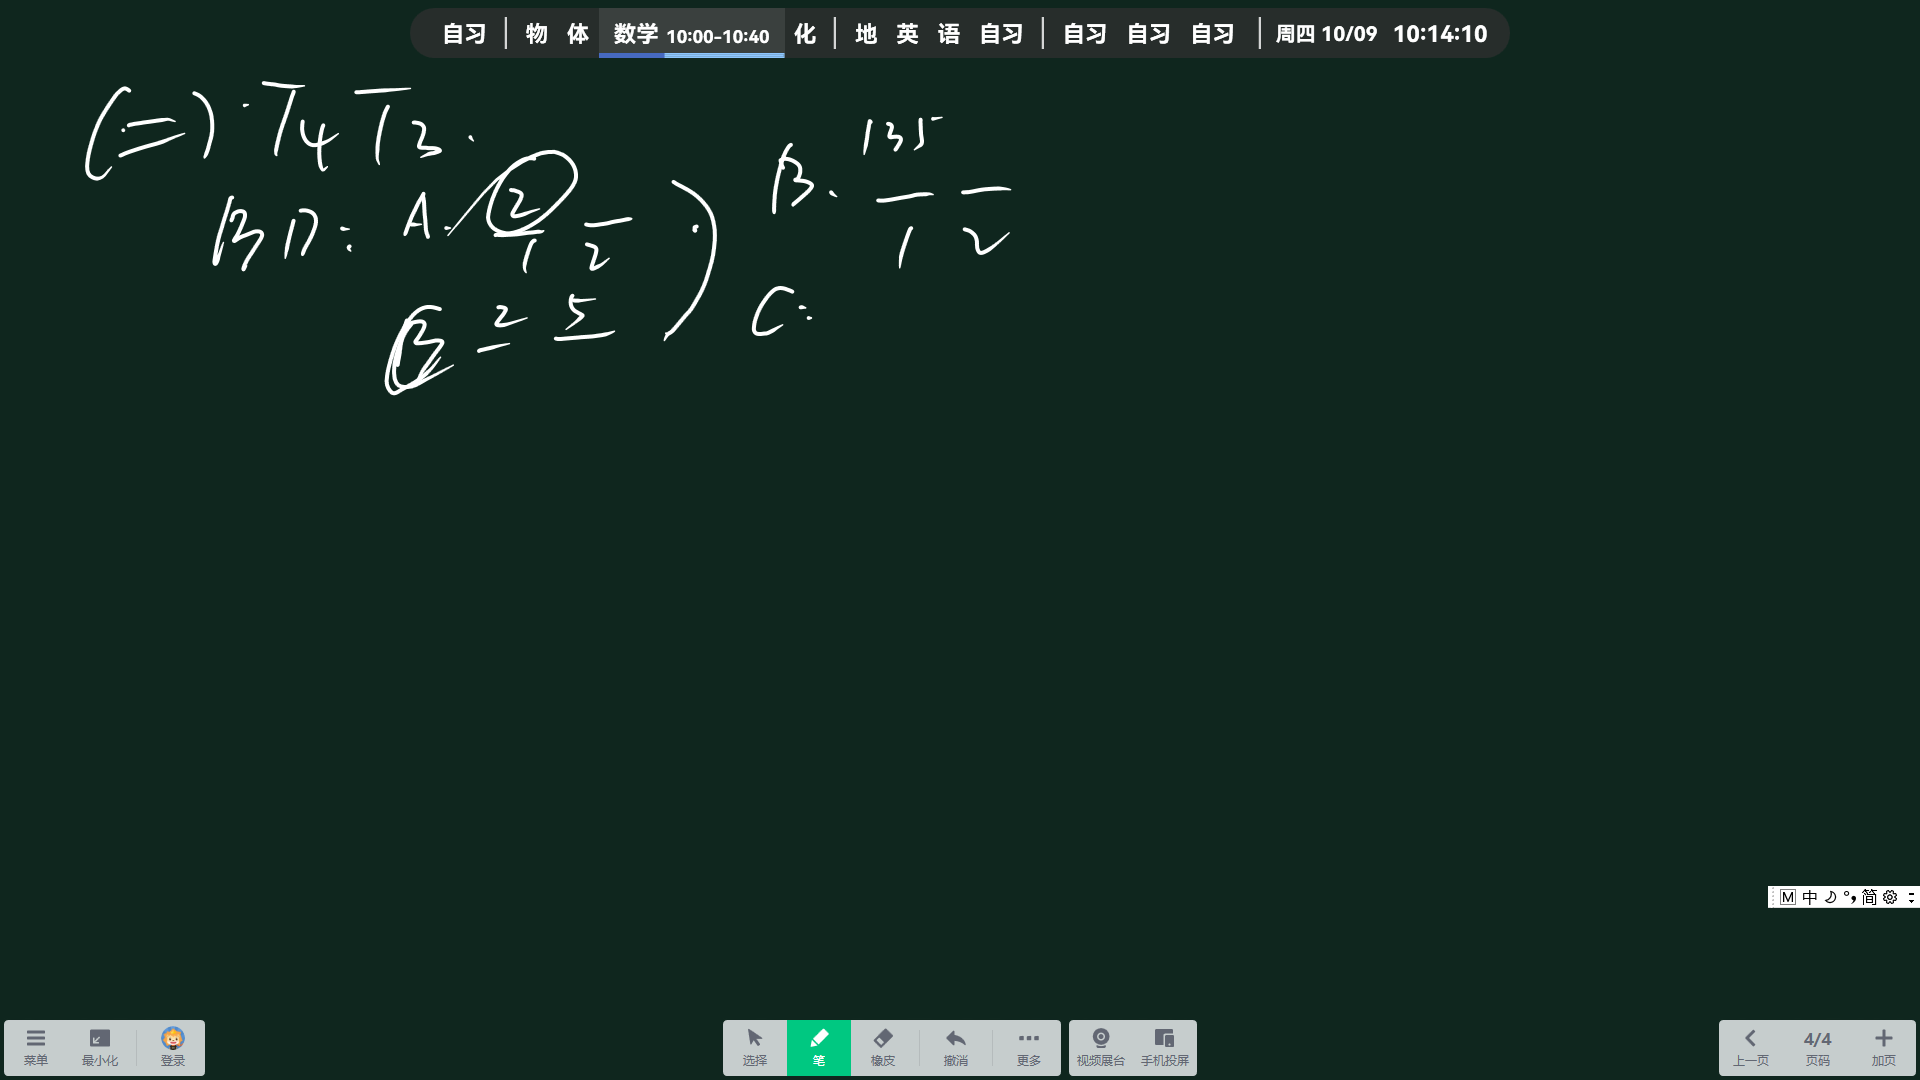 自习 | 物 体 数学 10:00-10:40 化 | 地 英 语 自习 | 自习 自习 自习 | 周四 10/09 10:14:10
(二)·T4 T3.
BD: A. 2
1 2
B 2 5
B. 135
1 2
C:
M 中 简
菜单 最小化 登录
选择 笔 橡皮 撤消 更多 视频展台 手机投屏
4/4
上一页 页码 加页